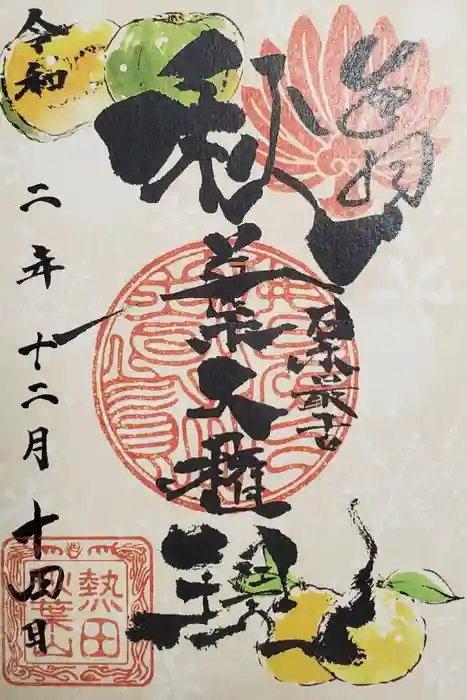 奉拝
日本最古
秋葉大権現
令和二年十二月十四日
熱田
秋葉山